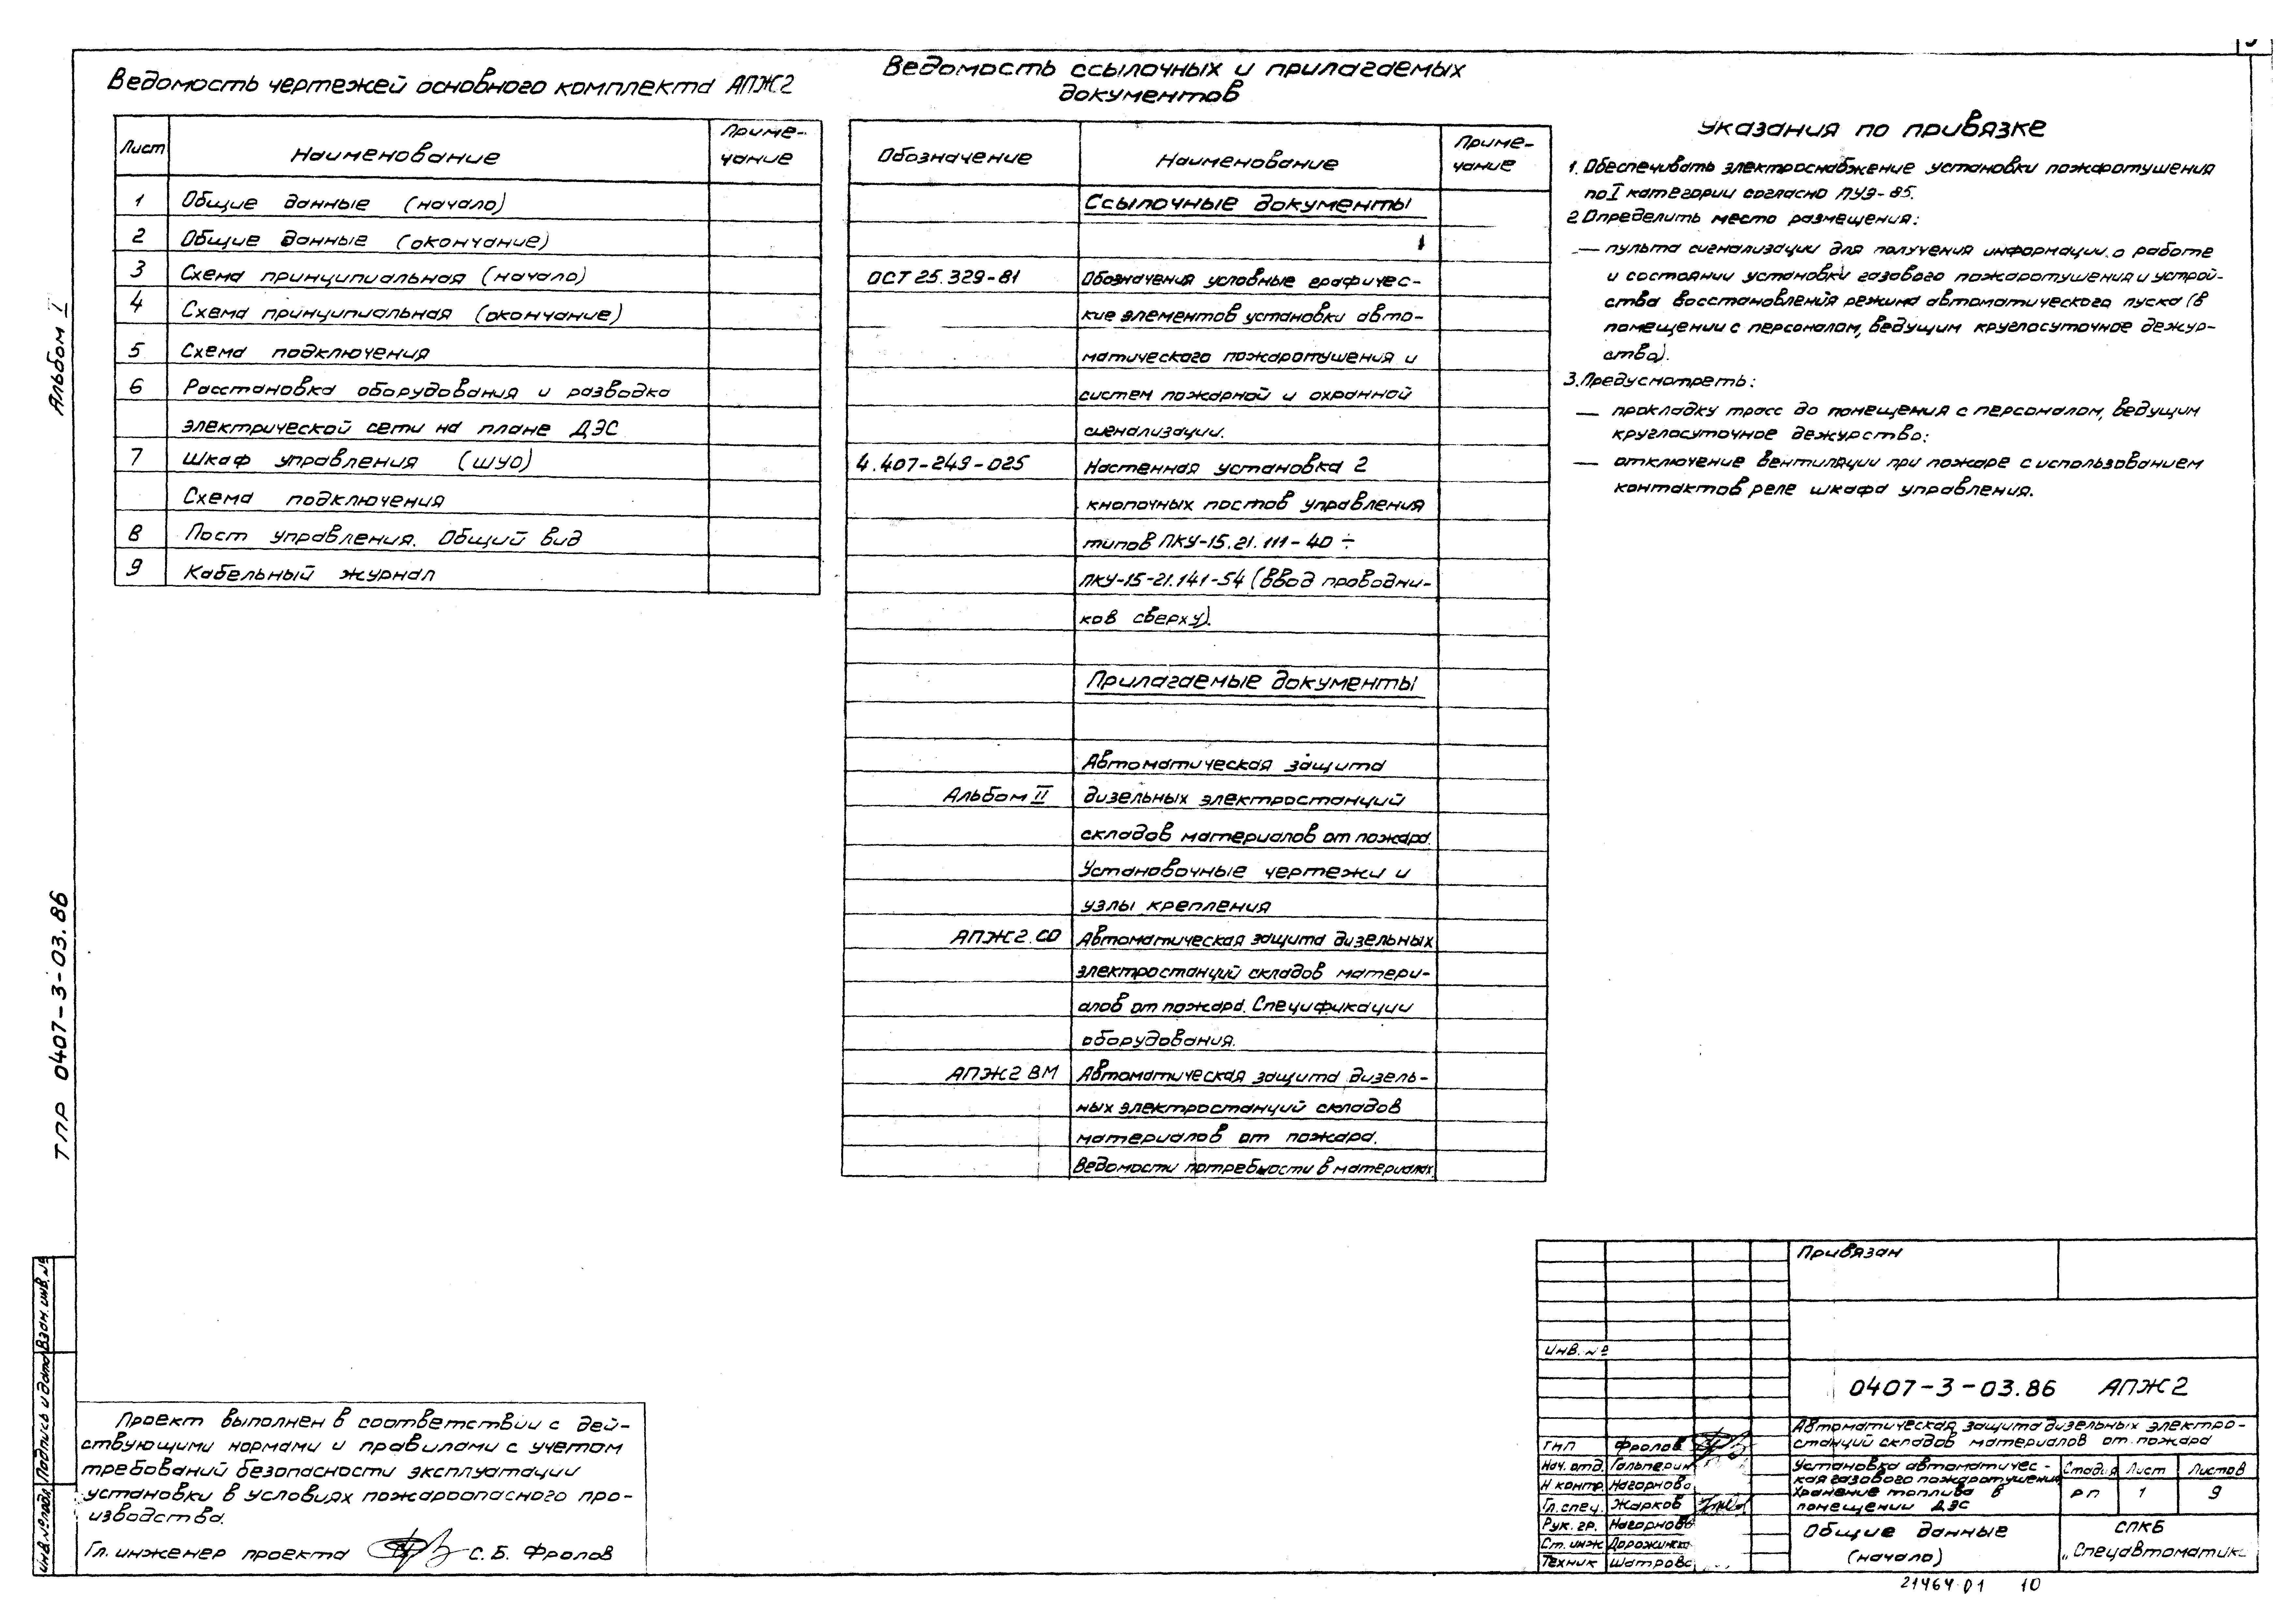 Альбом I
ТПР 0407-3-03.86
Ведомость чертежей основного комплекта АПЖ2
Лист Наименование Приме-
чание
1 Общие данные (начало)
2 Общие данные (окончание)
3 Схема принципиальная (начало)
4 Схема принципиальная (окончание)
5 Схема подключения
6 Расстановка оборудования и разводка
электрической сети на плане ДЭС
7 Шкаф управления (ШУО)
Схема подключения
8 Пост управления. Общий вид
9 Кабельный журнал
Ведомость ссылочных и прилагаемых
документов
Обозначение Наименование Приме-
чание
Ссылочные документы
ОСТ 25.329-81 Обозначения условные графичес-
кие элементов установки авто-
матического пожаротушения и
систем пожарной и охранной
сигнализации.
4.407-249-025 Настенная установка 2
кнопочных постов управления
типов ПКУ-15.21.111-40 ÷
ПКУ-15-21.141-54 (ввод проводни-
ков сверху).
Прилагаемые документы
Автоматическая защита
Альбом II дизельных электростанций
складов материалов от пожара.
Установочные чертежи и
узлы крепления
АПЖ2.СО Автоматическая защита дизельных
электростанций складов матери-
алов от пожара. Спецификации
оборудования.
АПЖ2 ВМ Автоматическая защита дизель-
ных электростанций складов
материалов от пожара.
Ведомости потребности в материалах
Указания по привязке
1. Обеспечивать электроснабжение установки пожаротушения
по I категории согласно ПУЭ-85.
2 Определить место размещения:
— пульта сигнализации для получения информации о работе
и состоянии установки газового пожаротушения и устрой-
ства восстановления режима автоматического пуска (в
помещении с персоналом, ведущим круглосуточное дежур-
ство).
3. Предусмотреть:
— прокладку трасс до помещения с персоналом, ведущим
круглосуточное дежурство;
— отключение вентиляции при пожаре с использованием
контактов реле шкафа управления.
Проект выполнен в соответствии с дей-
ствующими нормами и правилами с учетом
требований безопасности эксплуатации
установки в условиях пожароопасного про-
изводства.
Гл. инженер проекта С. Б. Фролов
Инв. № подл. Подпись и дата Взам. инв. №
Привязан
Инв. №
0407-3-03.86 АПЖ2
Автоматическая защита дизельных электро-
станций складов материалов от пожара
ГИП Фролов
Нач. отд. Гальперин
Н контр. Нагорнова
Гл. спец. Жарков
Рук. гр. Нагорнова
Ст. инж
Техник Шатрова
Установка автоматичес-
кая газового пожаротушения
Хранение топлива в
помещении ДЭС
Стадия Лист Листов
РП 1 9
Общие данные
(начало)
СПКБ
„Спецавтоматик
21464-01 10